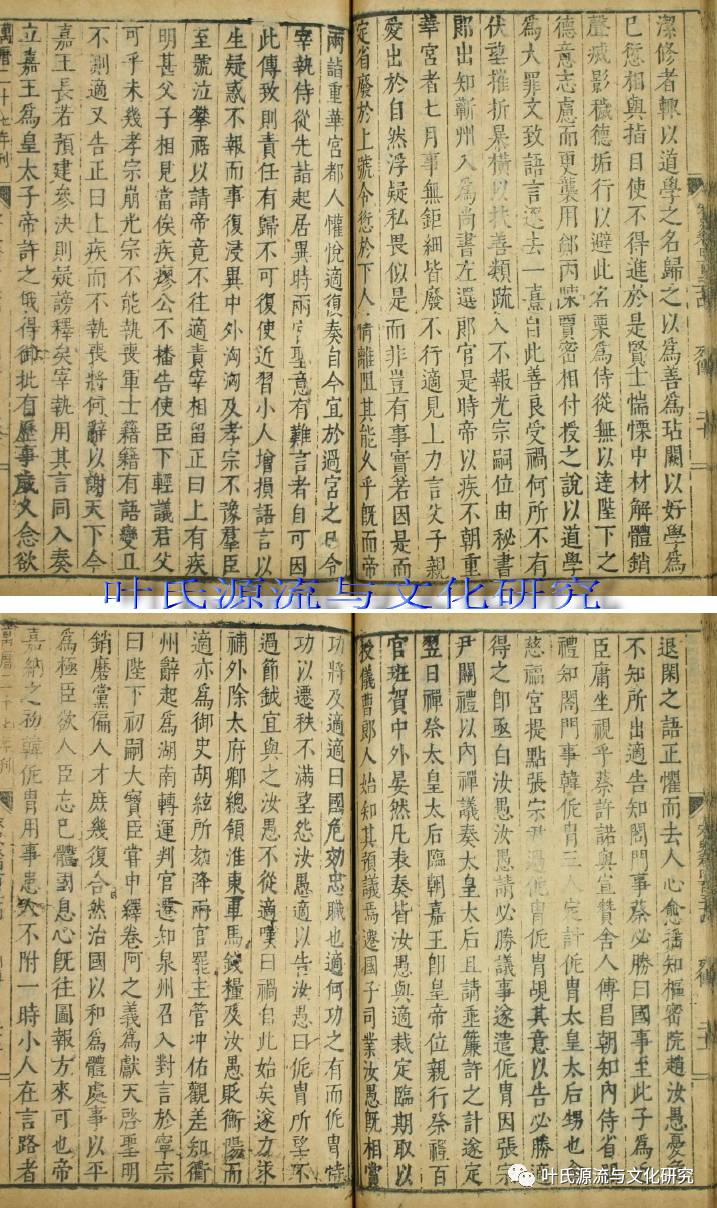 潔修者輒以道學之名歸之以為善為玷闕以好學為
已愆相與指目使不得進於是賢士惴慄中材解體銷
聲滅影穢德垢行以避此名栗為侍從無以達陛下之
德意志慮而更襲用鄭丙陳賈密相付授之說以道學
為大罪文致語言逐去一熹自此善良受禍何所不有
伏望摧折暴橫以扶善類疏入不報光宗嗣位由秘書
郎出知蘄州入為尚書左選郎官是時帝以疾不朝重
華宮者七月事無鉅細皆廢不行適見上力言父子親
愛出於自然浮疑私畏似是而非豈有事實若因是而
定省廢於上號令愆於下人情離阻其能乆乎既而帝
兩詣重華宮都人懽悅適復奏自今宜於過宮之日令
宰執侍從先詣起居異時兩宮聖意有難言者自可因
此傳致則責任有歸不可復使近習小人增損語言以
生疑惑不報而事復浸異中外洶洶及孝宗不豫羣臣
至號泣攀裾以請帝竟不往適責宰相留正曰上有疾
明甚父子相見當俟疾瘳公不播告使臣下輕議君父
可乎未幾孝宗崩光宗不能執喪軍士籍籍有語變且
不測適又告正曰上疾而不執喪將何辭以謝天下今
嘉王長若預建參決則疑謗釋矣宰執用其言同入奏
立嘉王為皇太子帝許之俄得御批有歷事歲乆念欲
萬曆二十七年刊
叶氏源流与文化研究
退閑之語正懼而去人心愈搖知樞密院趙汝愚憂
不知所出適告知閤門事蔡必勝曰國事至此子為
臣庸坐視乎蔡許諾與宣贊舍人傅昌朝知內侍省
禮知閤門事韓侂冑三人定計侂冑太皇太后甥也會
慈福宮提點張宗尹過侂冑侂冑覘其意以告必勝適
得之即亟白汝愚汝愚請必勝議事遂遣侂冑因張宗
尹關禮以內禪議奏太皇太后且請垂簾許之計遂定
翌日禫祭太皇太后臨朝嘉王即皇帝位親行祭禮百
官班賀中外晏然凡表奏皆汝愚與適裁定臨期取以
授儀曹郎人始知其預議焉遷國子司業汝愚既相賞
功將及適適曰國危効忠職也適何功之有而侂冑恃
功以遷秩不滿望怨汝愚適以告汝愚曰侂冑所望不
過節鉞宜與之汝愚不從適嘆曰禍自此始矣遂力求
補外除太府卿總領淮東軍馬錢糧及汝愚貶衡陽而
適亦為御史胡紘所劾降兩官罷主管冲佑觀差知衢
州辭起為湖南轉運判官遷知泉州召入對言於寧宗
曰陛下初嗣大寶臣嘗申繹卷阿之義為獻天啓聖明
銷磨黨偏人才庶幾復合然治國以和為體處事以平
為極臣欲人臣忘已體國息心既往圖報方來可也帝
嘉納之初韓侂冑用事患人不附一時小人在言路者
萬曆二十七年刊
叶氏源流与文化研究